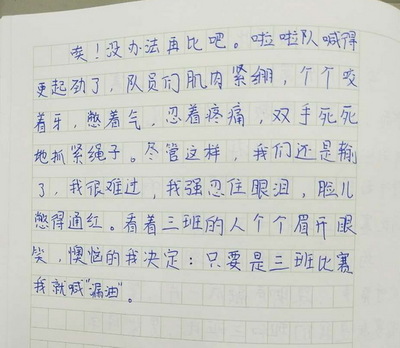 唉！没办法再比吧。啦啦队喊得
更起劲了，队员们肌肉紧绷，个个咬
着牙，憋着气，忍着疼痛，双手死死
地抓紧绳子。尽管这样，我们还是输
了，我很难过，我强忍住眼泪，脸儿
憋得通红。看着三班的人个个眉开眼
笑，懊恼的我决定：只要是三班比赛
我就喊“漏油”。